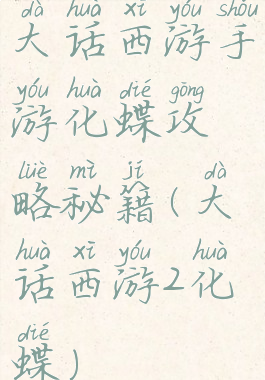 dà huà xī yóu shǒu
大话西游手
yóu huà dié gōng
游化蝶攻
lüè mì jí dà
略秘籍(大
huà xī yóu huà
话西游2化
dié
蝶)